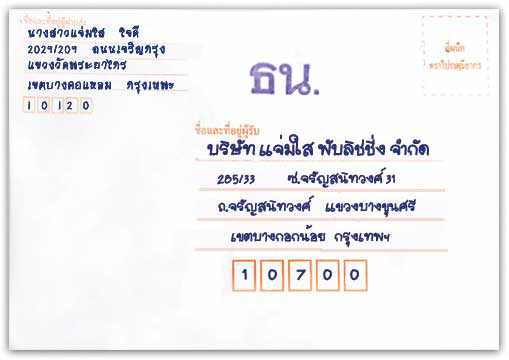 ชื่อและที่อยู่ผู้ฝากส่ง
นางสาวแจ่มใส ใจดี
2029/209 ถนนเจริญกรุง
แขวงวัดพระยาไกร
เขตบางคอแหลม กรุงเทพฯ
10120
ธน.
ที่ผนึก
ตราไปรษณียากร
ชื่อและที่อยู่ผู้รับ
บริษัท แจ่มใส พับลิชชิ่ง จำกัด
285/33 ซ.จรัญสนิทวงศ์ 31
ถ.จรัญสนิทวงศ์ แขวงบางขุนศรี
เขตบางกอกน้อย กรุงเทพฯ
10700